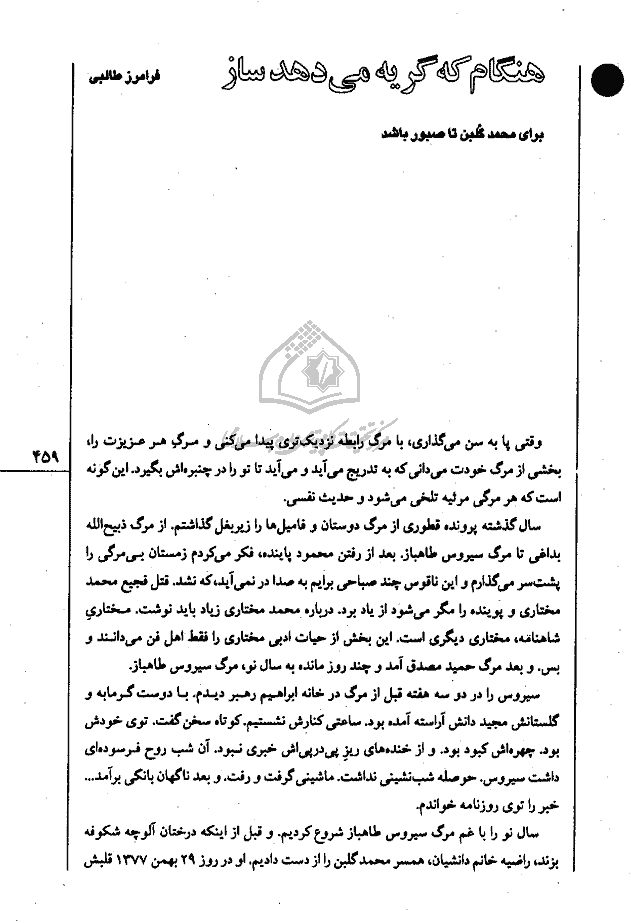 هنگام که گریه می‌دهد ساز
فرامرز طالبی
برای محمد گلبن تا صبور باشد
۴۵۹
وقتی پا به سن می‌گذاری، با مرگ رابطه نزدیک‌تری پیدا می‌کنی و مرگِ هر عزیزت را،
بخشی از مرگ خودت می‌دانی که به تدریج می‌آید و می‌آید تا تو را در چنبره‌اش بگیرد. این گونه
است که هر مرگی مرثیه تلخی می‌شود و حدیث نفسی.
سال گذشته پرونده قطوری از مرگ دوستان و فامیل‌ها را زیربغل گذاشتم. از مرگ ذبیح‌الله
بداغی تا مرگ سیروس طاهباز. بعد از رفتن محمود پاینده، فکر می‌کردم زمستان بی‌مرگی را
پشت‌سر می‌گذارم و این ناقوس چند صباحی برایم به صدا در نمی‌آید، که نشد. قتل فجیع محمد
مختاری و پوینده را مگر می‌شود از یاد برد. درباره محمد مختاری زیاد باید نوشت. مختاریِ
شاهنامه، مختاری دیگری است. این بخش از حیات ادبی مختاری را فقط اهل فن می‌دانند و
بس. و بعد مرگ حمید مصدق آمد و چند روز مانده به سال نو، مرگ سیروس طاهباز.
سیروس را در دو سه هفته قبل از مرگ در خانه ابراهیم رهبر دیدم. با دوست گرمابه و
گلستانش مجید دانش آراسته آمده بود. ساعتی کنارش نشستیم. کوتاه سخن گفت. توی خودش
بود. چهره‌اش کبود بود. و از خنده‌های ریزِ پی‌درپی‌اش خبری نبود. آن شب روح فرسوده‌ای
داشت سیروس. حوصله شب‌نشینی نداشت. ماشینی گرفت و رفت. و بعد ناگهان بانگی برآمد...
خبر را توی روزنامه خواندم.
سال نو را با غم مرگ سیروس طاهباز شروع کردیم. و قبل از اینکه درختان آلوچه شکوفه
بزند، راضیه خانم دانشیان، همسر محمد گلبن را از دست دادیم. او در روز ۲۹ بهمن ۱۳۷۷ قلبش